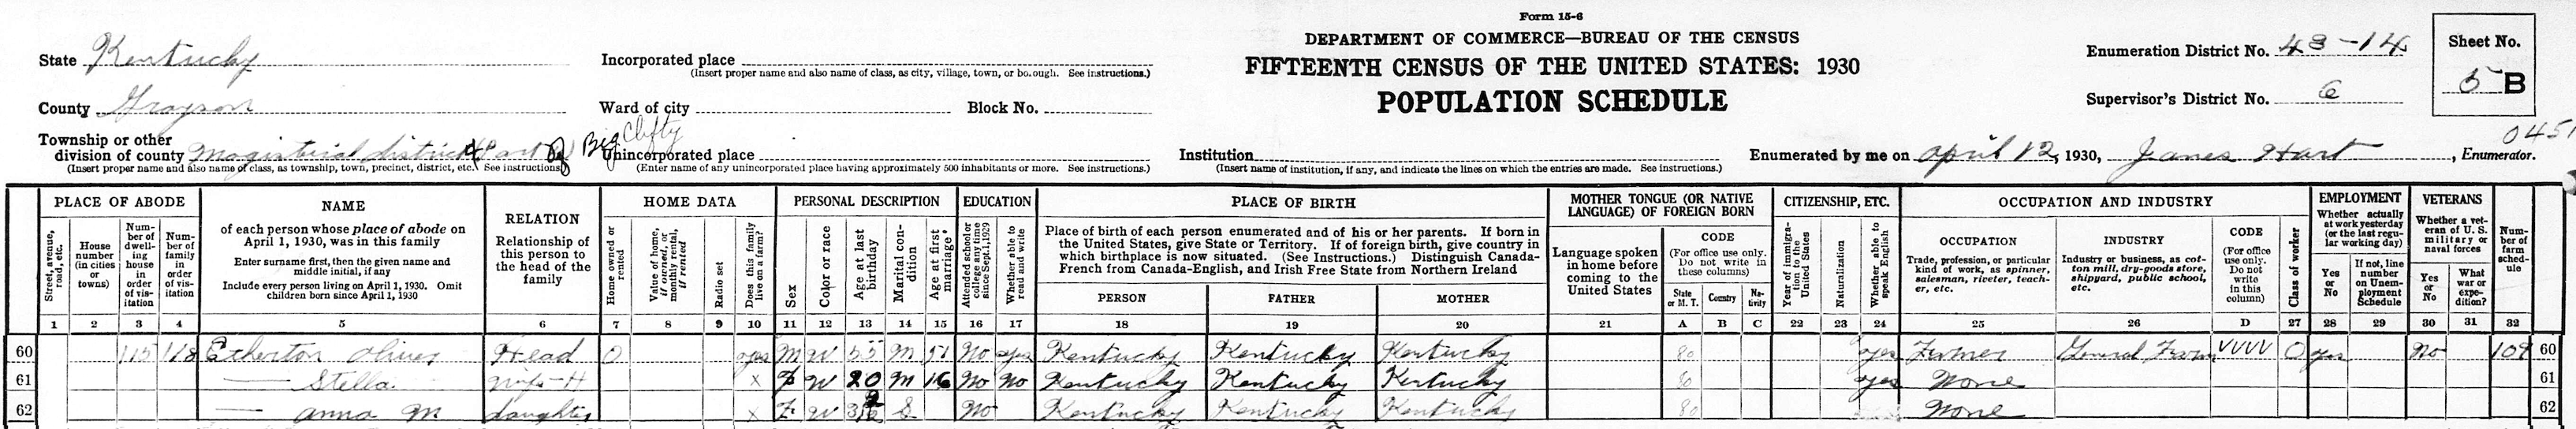 Form 15-6
DEPARTMENT OF COMMERCE—BUREAU OF THE CENSUS
FIFTEENTH CENSUS OF THE UNITED STATES: 1930
POPULATION SCHEDULE
State Kentucky
County Grayson
Township or other division of county Magisterial district 4 Part of Big Clifty
(Insert proper name and also name of class, as township, town, precinct, district, etc. See instructions.)
Incorporated place
(Insert proper name and also name of class, as city, village, town, or borough. See instructions.)
Ward of city
Block No.
Unincorporated place
(Enter name of any unincorporated place having approximately 500 inhabitants or more. See instructions.)
Institution
(Insert name of institution, if any, and indicate the lines on which the entries are made. See instructions.)
Enumeration District No. 43-14
Supervisor's District No. 6
Sheet No.
5 B
0451
Enumerated by me on April 12, 1930, James Hart, Enumerator.
PLACE OF ABODE
Street, avenue, road, etc.
House number (in cities or towns)
Number of dwelling house in order of visitation
Number of family in order of visitation
NAME
of each person whose place of abode on April 1, 1930, was in this family
Enter surname first, then the given name and middle initial, if any
Include every person living on April 1, 1930. Omit children born since April 1, 1930
RELATION
Relationship of this person to the head of the family
HOME DATA
Home owned or rented
Value of home, if owned, or monthly rental, if rented
Radio set
Does this family live on a farm?
PERSONAL DESCRIPTION
Sex
Color or race
Age at last birthday
Marital condition
Age at first marriage
EDUCATION
Attended school or college any time since Sept. 1, 1929
Whether able to read and write
PLACE OF BIRTH
Place of birth of each person enumerated and of his or her parents. If born in the United States, give State or Territory. If of foreign birth, give country in which birthplace is now situated. (See Instructions.) Distinguish Canada-French from Canada-English, and Irish Free State from Northern Ireland
PERSON
FATHER
MOTHER
MOTHER TONGUE (OR NATIVE LANGUAGE) OF FOREIGN BORN
Language spoken in home before coming to the United States
CODE
(For office use only. Do not write in these columns)
State or M. T.
Country
Nativity
CITIZENSHIP, ETC.
Year of immigration to the United States
Naturalization
Whether able to speak English
OCCUPATION AND INDUSTRY
OCCUPATION
Trade, profession, or particular kind of work, as spinner, salesman, riveter, teacher, etc.
INDUSTRY
Industry or business, as cotton mill, dry-goods store, shipyard, public school, etc.
CODE
(For office use only. Do not write in this column)
Class of worker
EMPLOYMENT
Whether actually at work yesterday (or the last regular working day)
Yes or No
If not, line number on Unemployment Schedule
VETERANS
Whether a veteran of U. S. military or naval forces
Yes or No
What war or expedition?
Number of farm schedule
1 2 3 4 5 6 7 8 9 10 11 12 13 14 15 16 17 18 19 20 21 A B C 22 23 24 25 26 D 27 28 29 30 31 32
60 115 118 Etherton Oliver Head O yes M W 55 M 51 No yes Kentucky Kentucky Kentucky 80 yes Farmer General Farm VVVV O yes No 109 60
61 —— Stella wife-H x F W 20 M 16 No No Kentucky Kentucky Kentucky 80 yes None 61
62 —— Anna M daughter x F W S No Kentucky Kentucky Kentucky 80 None 62